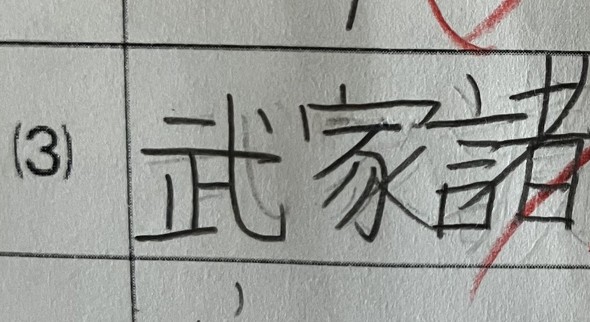 (3) 武家諸